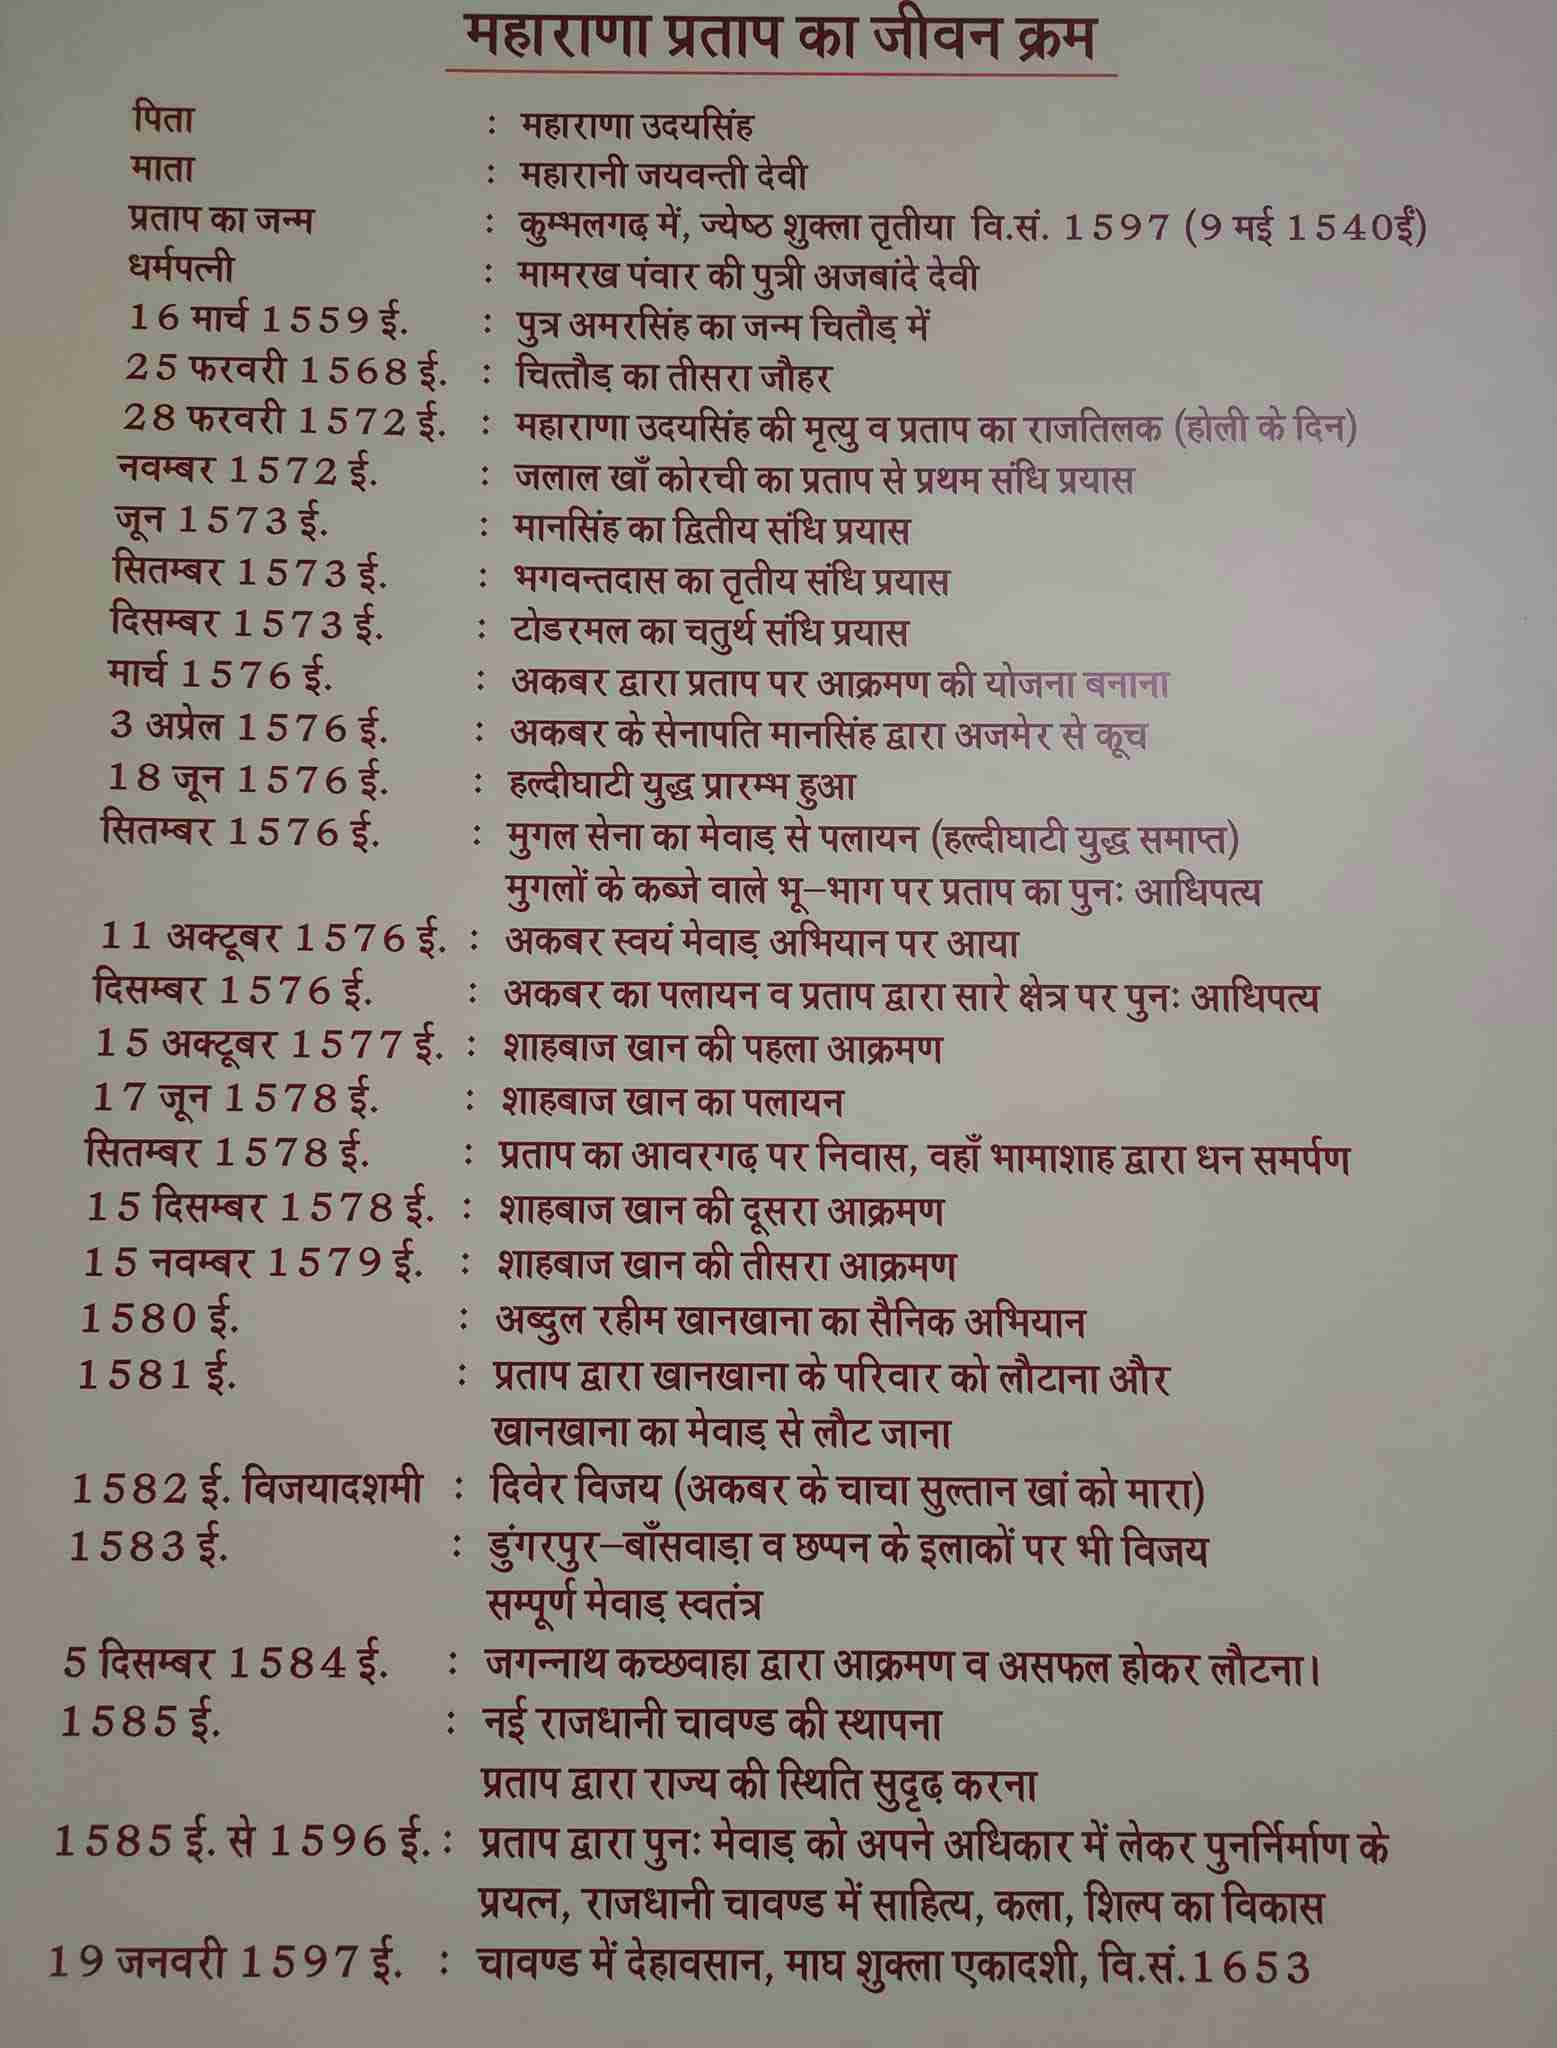 महाराणा प्रताप का जीवन क्रम
पिता : महाराणा उदयसिंह
माता : महारानी जयवन्ती देवी
प्रताप का जन्म : कुम्भलगढ़ में, ज्येष्ठ शुक्ला तृतीया वि.सं. 1597 (9 मई 1540ईं)
धर्मपत्नी : मामरख पंवार की पुत्री अजबांदे देवी
16 मार्च 1559 ई. : पुत्र अमरसिंह का जन्म चितौड़ में
25 फरवरी 1568 ई. : चित्तौड़ का तीसरा जौहर
28 फरवरी 1572 ई. : महाराणा उदयसिंह की मृत्यु व प्रताप का राजतिलक (होली के दिन)
नवम्बर 1572 ई. : जलाल खाँ कोरची का प्रताप से प्रथम संधि प्रयास
जून 1573 ई. : मानसिंह का द्वितीय संधि प्रयास
सितम्बर 1573 ई. : भगवन्तदास का तृतीय संधि प्रयास
दिसम्बर 1573 ई. : टोडरमल का चतुर्थ संधि प्रयास
मार्च 1576 ई. : अकबर द्वारा प्रताप पर आक्रमण की योजना बनाना
3 अप्रेल 1576 ई. : अकबर के सेनापति मानसिंह द्वारा अजमेर से कूच
18 जून 1576 ई. : हल्दीघाटी युद्ध प्रारम्भ हुआ
सितम्बर 1576 ई. : मुगल सेना का मेवाड़ से पलायन (हल्दीघाटी युद्ध समाप्त)
मुगलों के कब्जे वाले भू-भाग पर प्रताप का पुनः आधिपत्य
11 अक्टूबर 1576 ई. : अकबर स्वयं मेवाड़ अभियान पर आया
दिसम्बर 1576 ई. : अकबर का पलायन व प्रताप द्वारा सारे क्षेत्र पर पुनः आधिपत्य
15 अक्टूबर 1577 ई. : शाहबाज खान की पहला आक्रमण
17 जून 1578 ई. : शाहबाज खान का पलायन
सितम्बर 1578 ई. : प्रताप का आवरगढ़ पर निवास, वहाँ भामाशाह द्वारा धन समर्पण
15 दिसम्बर 1578 ई. : शाहबाज खान की दूसरा आक्रमण
15 नवम्बर 1579 ई. : शाहबाज खान की तीसरा आक्रमण
1580 ई. : अब्दुल रहीम खानखाना का सैनिक अभियान
1581 ई. : प्रताप द्वारा खानखाना के परिवार को लौटाना और
खानखाना का मेवाड़ से लौट जाना
1582 ई. विजयादशमी : दिवेर विजय (अकबर के चाचा सुल्तान खां को मारा)
1583 ई. : डुंगरपुर-बाँसवाड़ा व छप्पन के इलाकों पर भी विजय
सम्पूर्ण मेवाड़ स्वतंत्र
5 दिसम्बर 1584 ई. : जगन्नाथ कच्छवाहा द्वारा आक्रमण व असफल होकर लौटना।
1585 ई. : नई राजधानी चावण्ड की स्थापना
प्रताप द्वारा राज्य की स्थिति सुदृढ़ करना
1585 ई. से 1596 ई. : प्रताप द्वारा पुनः मेवाड़ को अपने अधिकार में लेकर पुनर्निर्माण के
प्रयत्न, राजधानी चावण्ड में साहित्य, कला, शिल्प का विकास
19 जनवरी 1597 ई. : चावण्ड में देहावसान, माघ शुक्ला एकादशी, वि.सं.1653